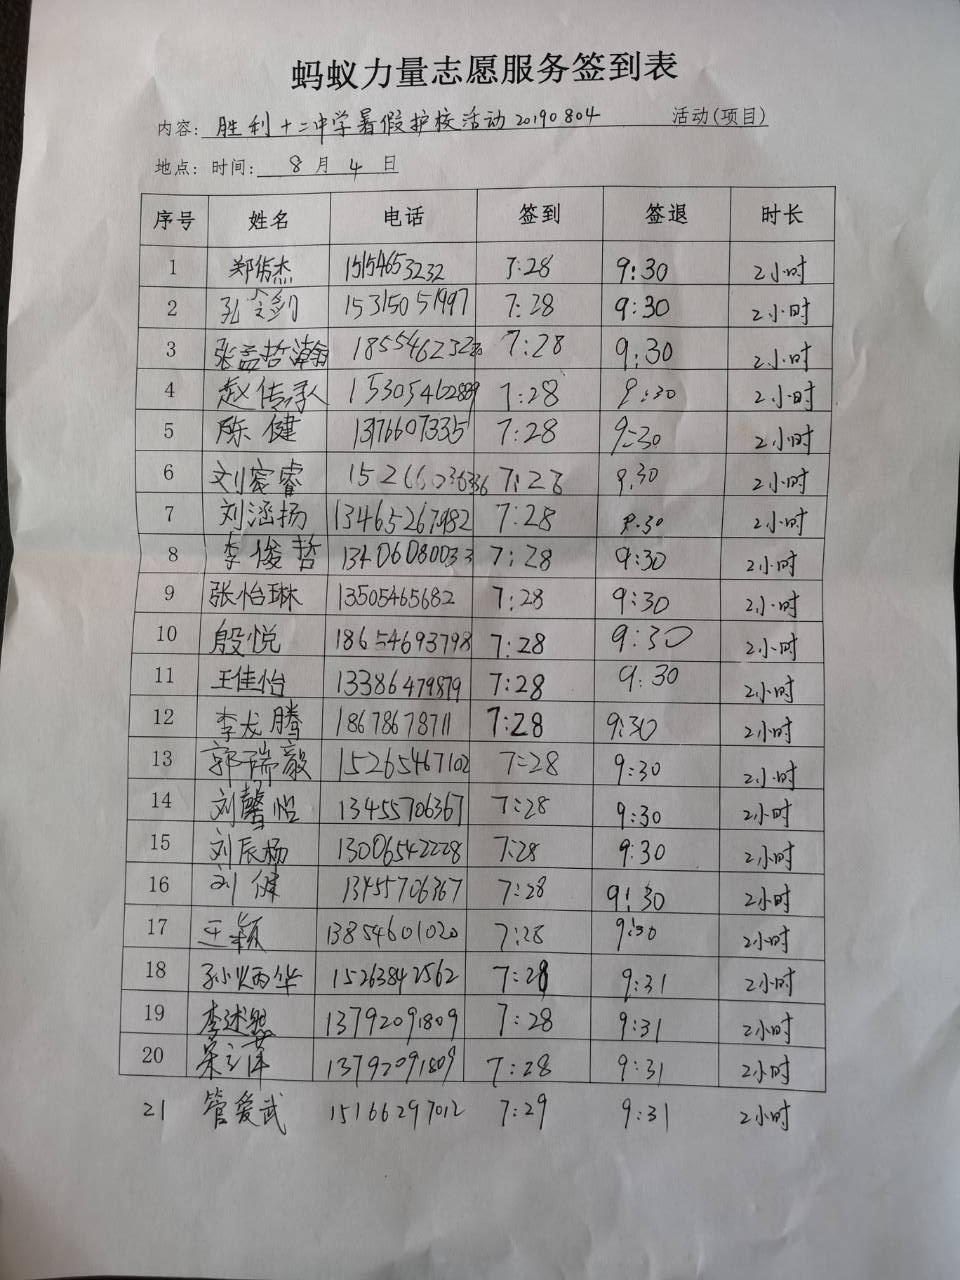 蚂蚁力量志愿服务签到表
内容: 胜利十二中学暑假护校活动20190804 活动(项目)
地点: 时间: 8 月 4 日
序号 姓名 电话 签到 签退 时长
1 郑皓杰 15154653232 7:28 9:30 2小时
2 孔令剑 15315051997 7:28 9:30 2小时
3 张益哲瀚 7:28 9:30 2小时
4 赵传承 15305462889 7:28 9:30 2小时
5 陈健 13176607335 7:28 9:30 2小时
6 7:28 9:30 2小时
7 刘涵扬 13465267982 7:28 9:30 2小时
8 李俊哲 13406080033 7:28 9:30 2小时
9 张怡琳 13505465682 7:28 9:30 2小时
10 殷悦 18654693798 7:28 9:30 2小时
11 王佳怡 13386479879 7:28 9:30 2小时
12 李龙腾 18678678711 7:28 9:30 2小时
13 郭瑞毅 15265467102 7:28 9:30 2小时
14 刘馨怡 13455706367 7:28 9:30 2小时
15 刘辰杨 13006542228 7:28 9:30 2小时
16 刘健 13455706367 7:28 9:30 2小时
17 王颖 13854601020 7:28 9:30 2小时
18 孙炳华 15263842562 7:28 9:31 2小时
19 13792091809 7:28 9:31 2小时
20 13792091809 7:28 9:31 2小时
21 管爱武 15166297012 7:29 9:31 2小时